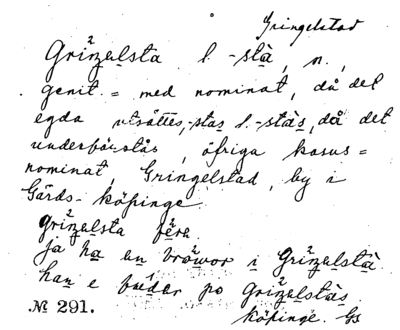 Gringelstad
Grinzelsta l. -stà, n.,
genit. = med nominat, då det
egda utsättes, -stas l. -stàs, då det
underförstås, öfriga kasus =
nominat, Gringelstad, by i
Gärds-köpinge
Grinzelsta
ja ha en bròwor i Grinzelstà
han e po Grinzelstàs
№ 291. köpinge. Gs